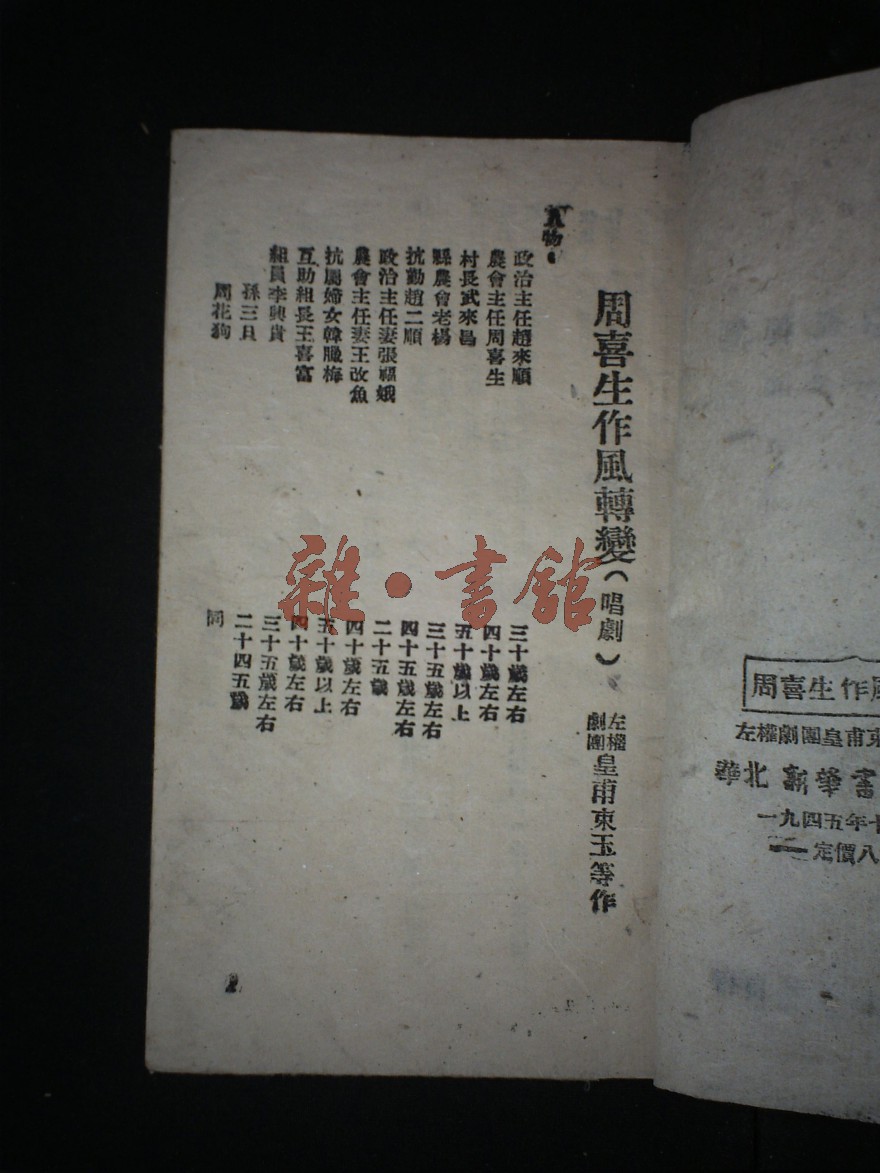 周喜生作風轉變（唱劇）
左權劇團 皇甫束玉等作
人物：
政治主任趙來順 三十歲左右
農會主任周喜生 四十歲左右
村長武來昌 五十歲以上
縣農會老楊 三十五歲左右
抗勤趙二順 四十五歲左右
政治主任妻張福娥 二十五歲
農會主任妻王改魚 四十歲左右
抗屬婦女韓臘梅 五十歲以上
互助組長王喜富 四十歲左右
組員李興貴 三十五歲左右
孫三旦 二十四五歲
周花狗 同
1
雜·書館
周喜生作風
左權劇團皇甫束
華北新華書
一九四五年十
定價八